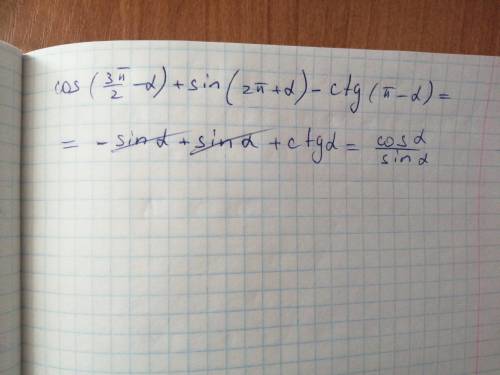 cos(3π/2 - α) + sin(2π + α) - ctg(π - α) =
= - sin α + sin α + ctg α = cos α / sin α